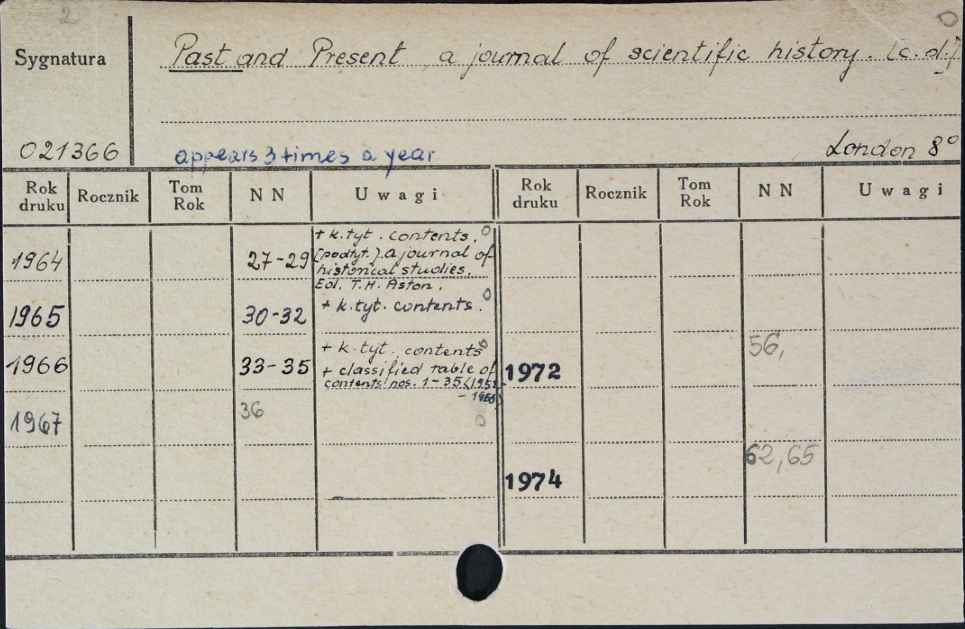 2
Sygnatura
Past and Present a journal of scientific history. (c.d.)
021366
appears 3 times a year
London 8°
Rok druku Rocznik Tom Rok N N Uwagi Rok druku Rocznik Tom Rok N N Uwagi
1964 27-29 + k.tyt. contents.
(podtyt.). a journal of
historical studies.
Ed. T.H. Aston.
1965 30-32 + k.tyt. contents.
1966 33-35 + k.tyt. contents
+ classified table of
contents nos. 1-35 (1952-
- 1966)
1967 36
1972 56,
1974 62, 65